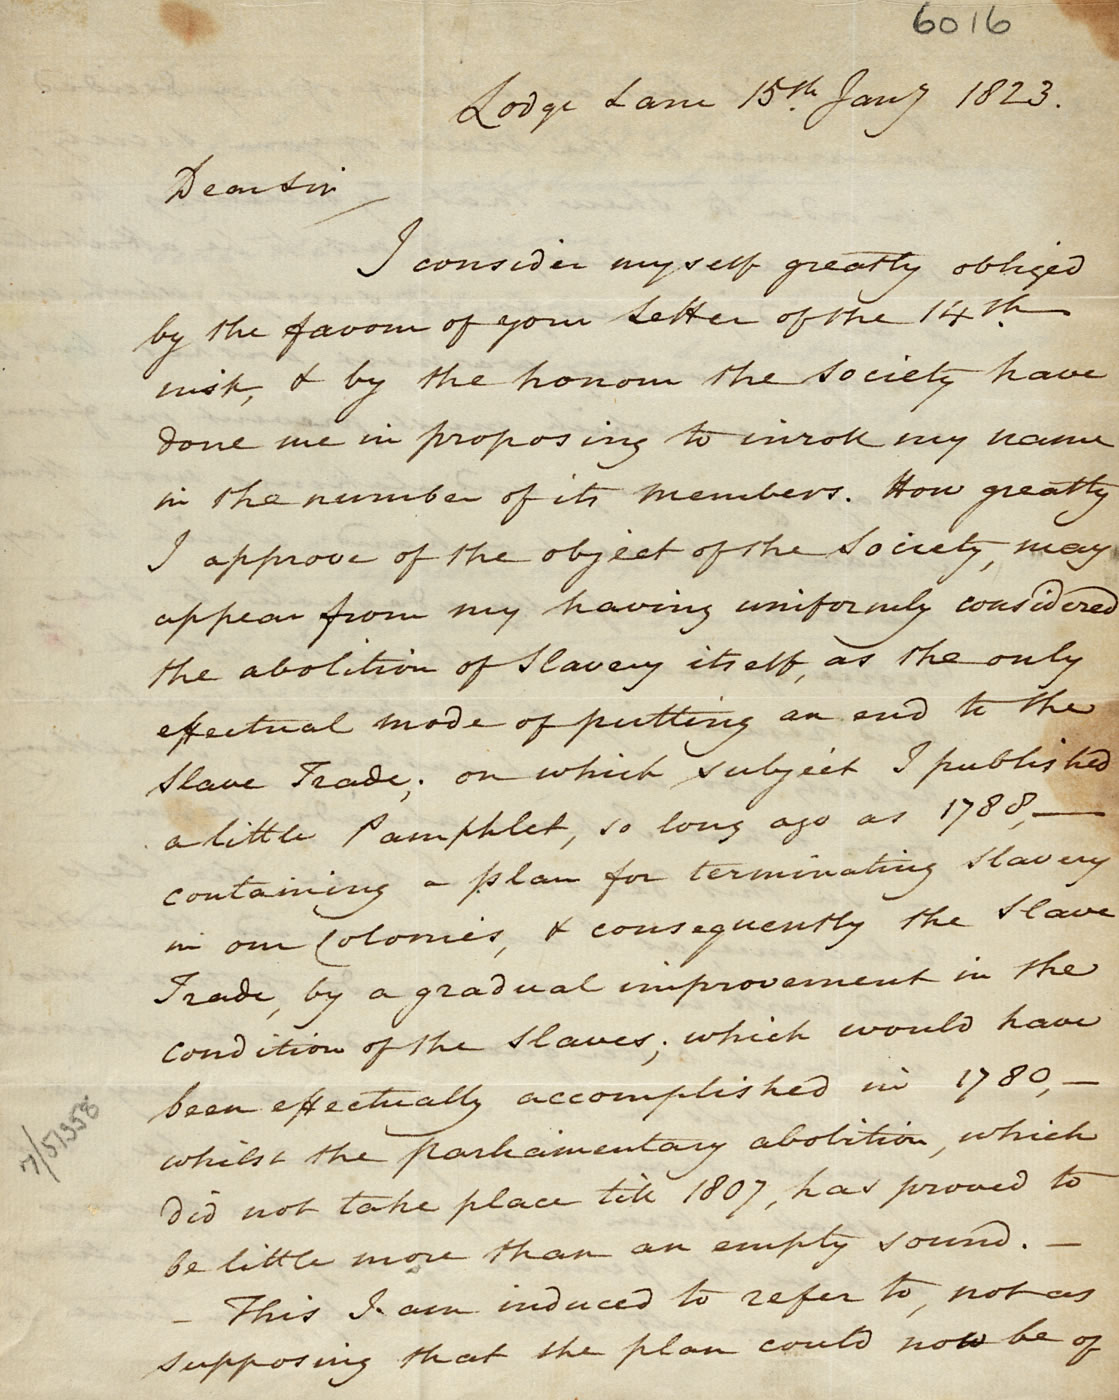 6016
Lodge Lane 15th Jany 1823.
Dear Sir
I consider myself greatly obliged
by the favour of your Letter of the 14th
inst, & by the honour the Society have
done me in proposing to inroll my name
in the number of its members. How greatly
I approve of the object of the Society, may
appear from my having uniformly considered
the abolition of Slavery itself, as the only
effectual mode of putting an end to the
Slave Trade; on which subject I published
a little Pamphlet, so long ago as 1788,—
containing a plan for terminating Slavery
in our Colonies, & consequently the Slave
Trade, by a gradual improvement in the
condition of the Slaves; which would have
been effectually accomplished in 1780,—
whilst the parliamentary abolition, which
did not take place till 1807, has proved to
be little more than an empty sound. —
— This I am induced to refer to, not as
supposing that the plan could now be of
7/51358